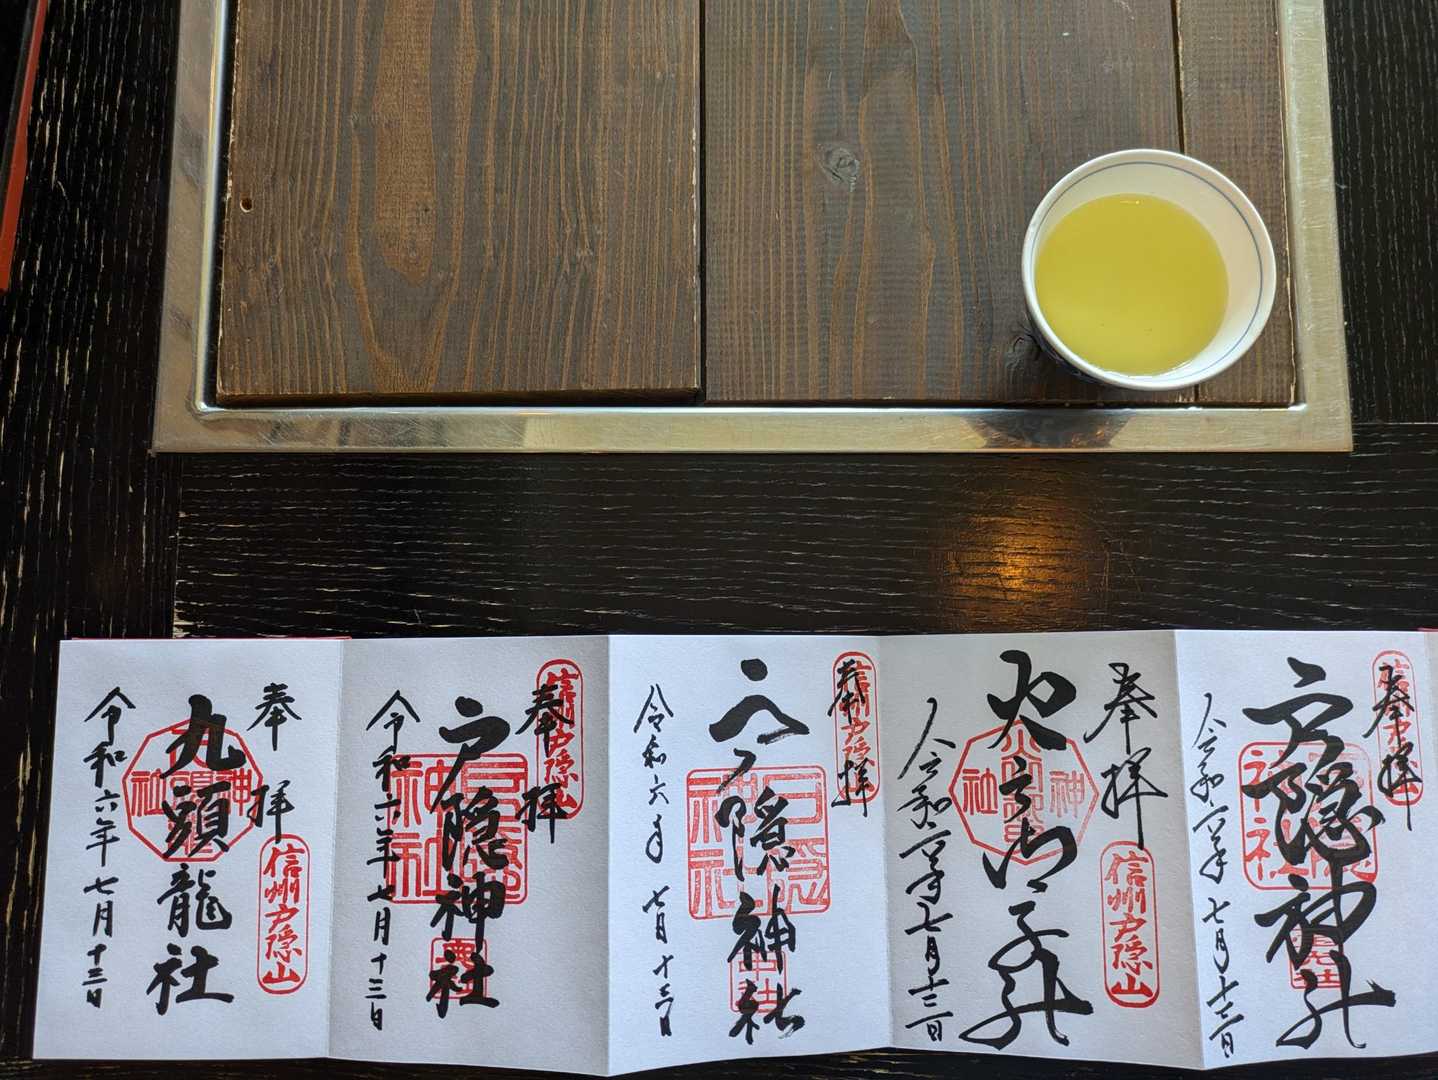 奉拝
信州戸隠山
戸隠神社
宝光社
令和六年七月十三日
奉拝
信州戸隠山
火之御子社
令和六年七月十三日
奉拝
信州戸隠山
戸隠神社
中社
令和六年七月十三日
奉拝
信州戸隠山
戸隠神社
奥社
令和六年七月十三日
奉拝
信州戸隠山
九頭龍社
令和六年七月十三日